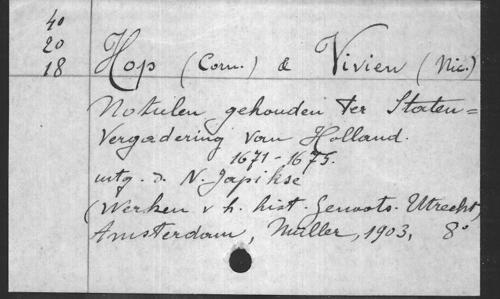 40
20
18
Hop (Corn.) & Vivien (Nic.)
Notulen gehouden ter Staten=
Vergadering van Holland.
1671-1675.
uitg. d. N. Japikse
(Werken v h. hist Genoots. Utrecht)
Amsterdam, Müller, 1903, 8°